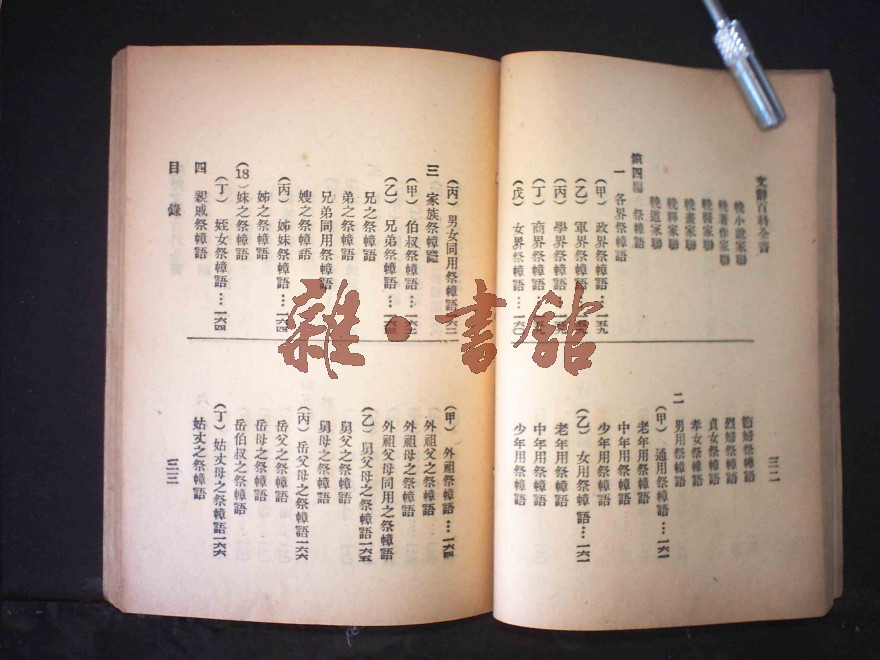 文辭百科全書
輓小說家聯
輓著作家聯
輓醫家聯
輓畫家聯
輓釋家聯
輓道家聯
第四編 祭幛語
一 各界祭幛語
（甲）政界祭幛語…一五九
（乙）軍界祭幛語…一五九
（丙）學界祭幛語…一五九
（丁）商界祭幛語…一五九
（戊）女界祭幛語…一六〇
節婦祭幛語
烈婦祭幛語
貞女祭幛語
孝女祭幛語
二 男用祭幛語
（甲）通用祭幛語…一六一
老年用祭幛語
中年用祭幛語
少年用祭幛語
（乙）女用祭幛語…一六一
老年用祭幛語
中年用祭幛語
少年用祭幛語
三二
（丙）男女同用祭幛語一六二
三 家族祭幛語
（甲）伯叔祭幛語…一六三
（乙）兄弟祭幛語…一六三
兄之祭幛語
弟之祭幛語
兄弟同用祭幛語
嫂之祭幛語
（丙）姊妹祭幛語…一六四
姊之祭幛語
(18)妹之祭幛語
（丁）姪女祭幛語…一六四
四 親戚祭幛語
（甲）外祖祭幛語…一六四
外祖父之祭幛語
外祖母之祭幛語
外祖父母同用之祭幛語
（乙）舅父母之祭幛語一六五
舅父之祭幛語
舅母之祭幛語
（丙）岳父母祭幛語一六六
岳父之祭幛語
岳母之祭幛語
岳伯叔之祭幛語
（丁）姑丈母之祭幛語一六六
姑丈之祭幛語
目錄
三三
雜·書館